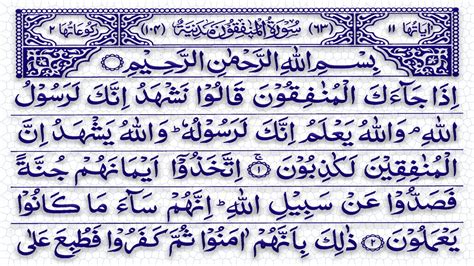 اٰیَاتُهَا ۱۱ (۶۳) سُوْرَةُ الْمُنٰفِقُوْنَ مَدَنِیَّةٌ (۱۰۴) رُكُوْعَاتُهَا ۲
بِسْمِ اللّٰهِ الرَّحْمٰنِ الرَّحِیْمِ
اِذَا جَآءَكَ الْمُنٰفِقُوْنَ قَالُوْا نَشْهَدُ اِنَّكَ لَرَسُوْلُ
اللّٰهِ ۘ وَاللّٰهُ یَعْلَمُ اِنَّكَ لَرَسُوْلُهٗ ؕ وَاللّٰهُ یَشْهَدُ اِنَّ
الْمُنٰفِقِیْنَ لَكٰذِبُوْنَ ۚ ۝۱ اِتَّخَذُوْۤا اَیْمَانَهُمْ جُنَّةً
فَصَدُّوْا عَنْ سَبِیْلِ اللّٰهِ ؕ اِنَّهُمْ سَآءَ مَا كَانُوْا
یَعْمَلُوْنَ ۝۲ ذٰلِكَ بِاَنَّهُمْ اٰمَنُوْا ثُمَّ كَفَرُوْا فَطُبِعَ عَلٰی